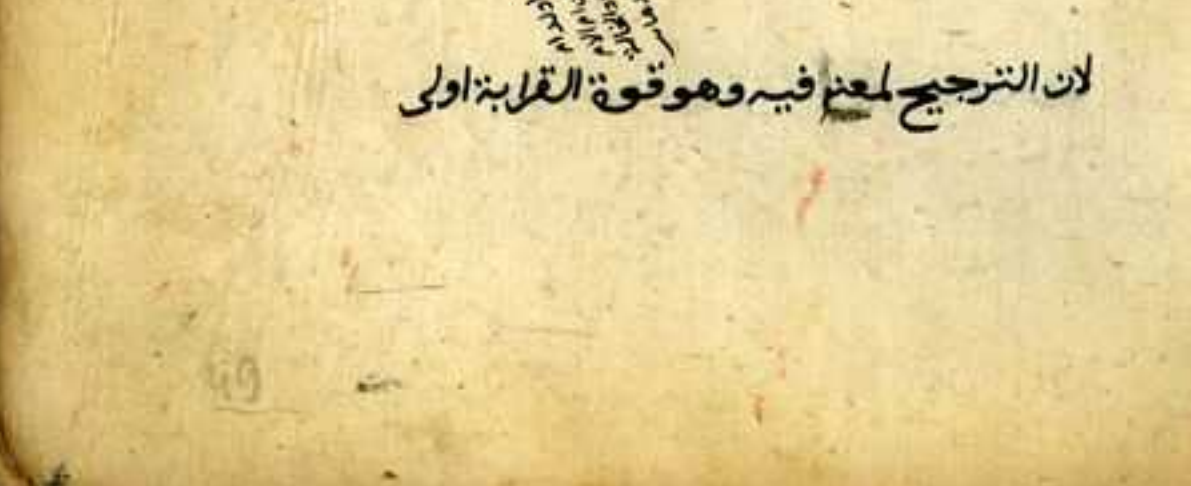 لان الترجيح لمعنى فيه وهو قوة القرابة اولى
49